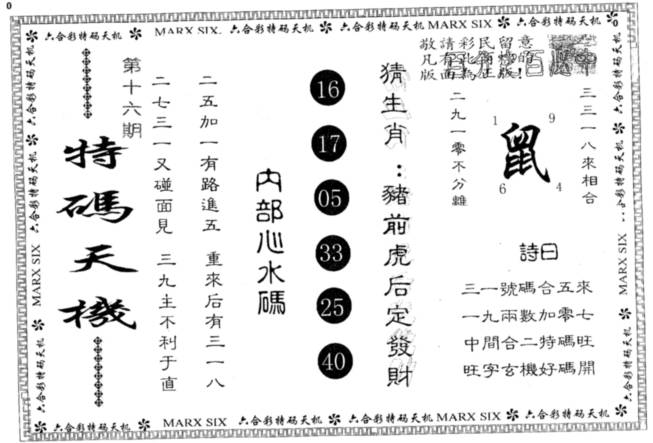 0
六合彩特码天机 MARX SIX. 六合彩特码天机 MARX SIX 六合彩特码天机
0
敬請彩民留意
凡有此
版面為正版!
第十六期
特碼天機
二五加一有路進五 重來后有三一八
二七三一又碰面見 三九主不利于直
內部心水碼
16
17
05
33
25
40
猜生肖：豬前虎后定發財
三三一八來相合
二九一零不分離
1
9
鼠
6
4
詩曰
三一號碼合五來
一九兩數加零七
中間合二特碼旺
旺字玄機好碼開
六合彩特码天机 MARX SIX 六合彩特码天机
六合彩特码天机 MARX SIX
六合彩特码天机 MARX SIX 六合彩特码天机 MARX SIX 六合彩特码天机